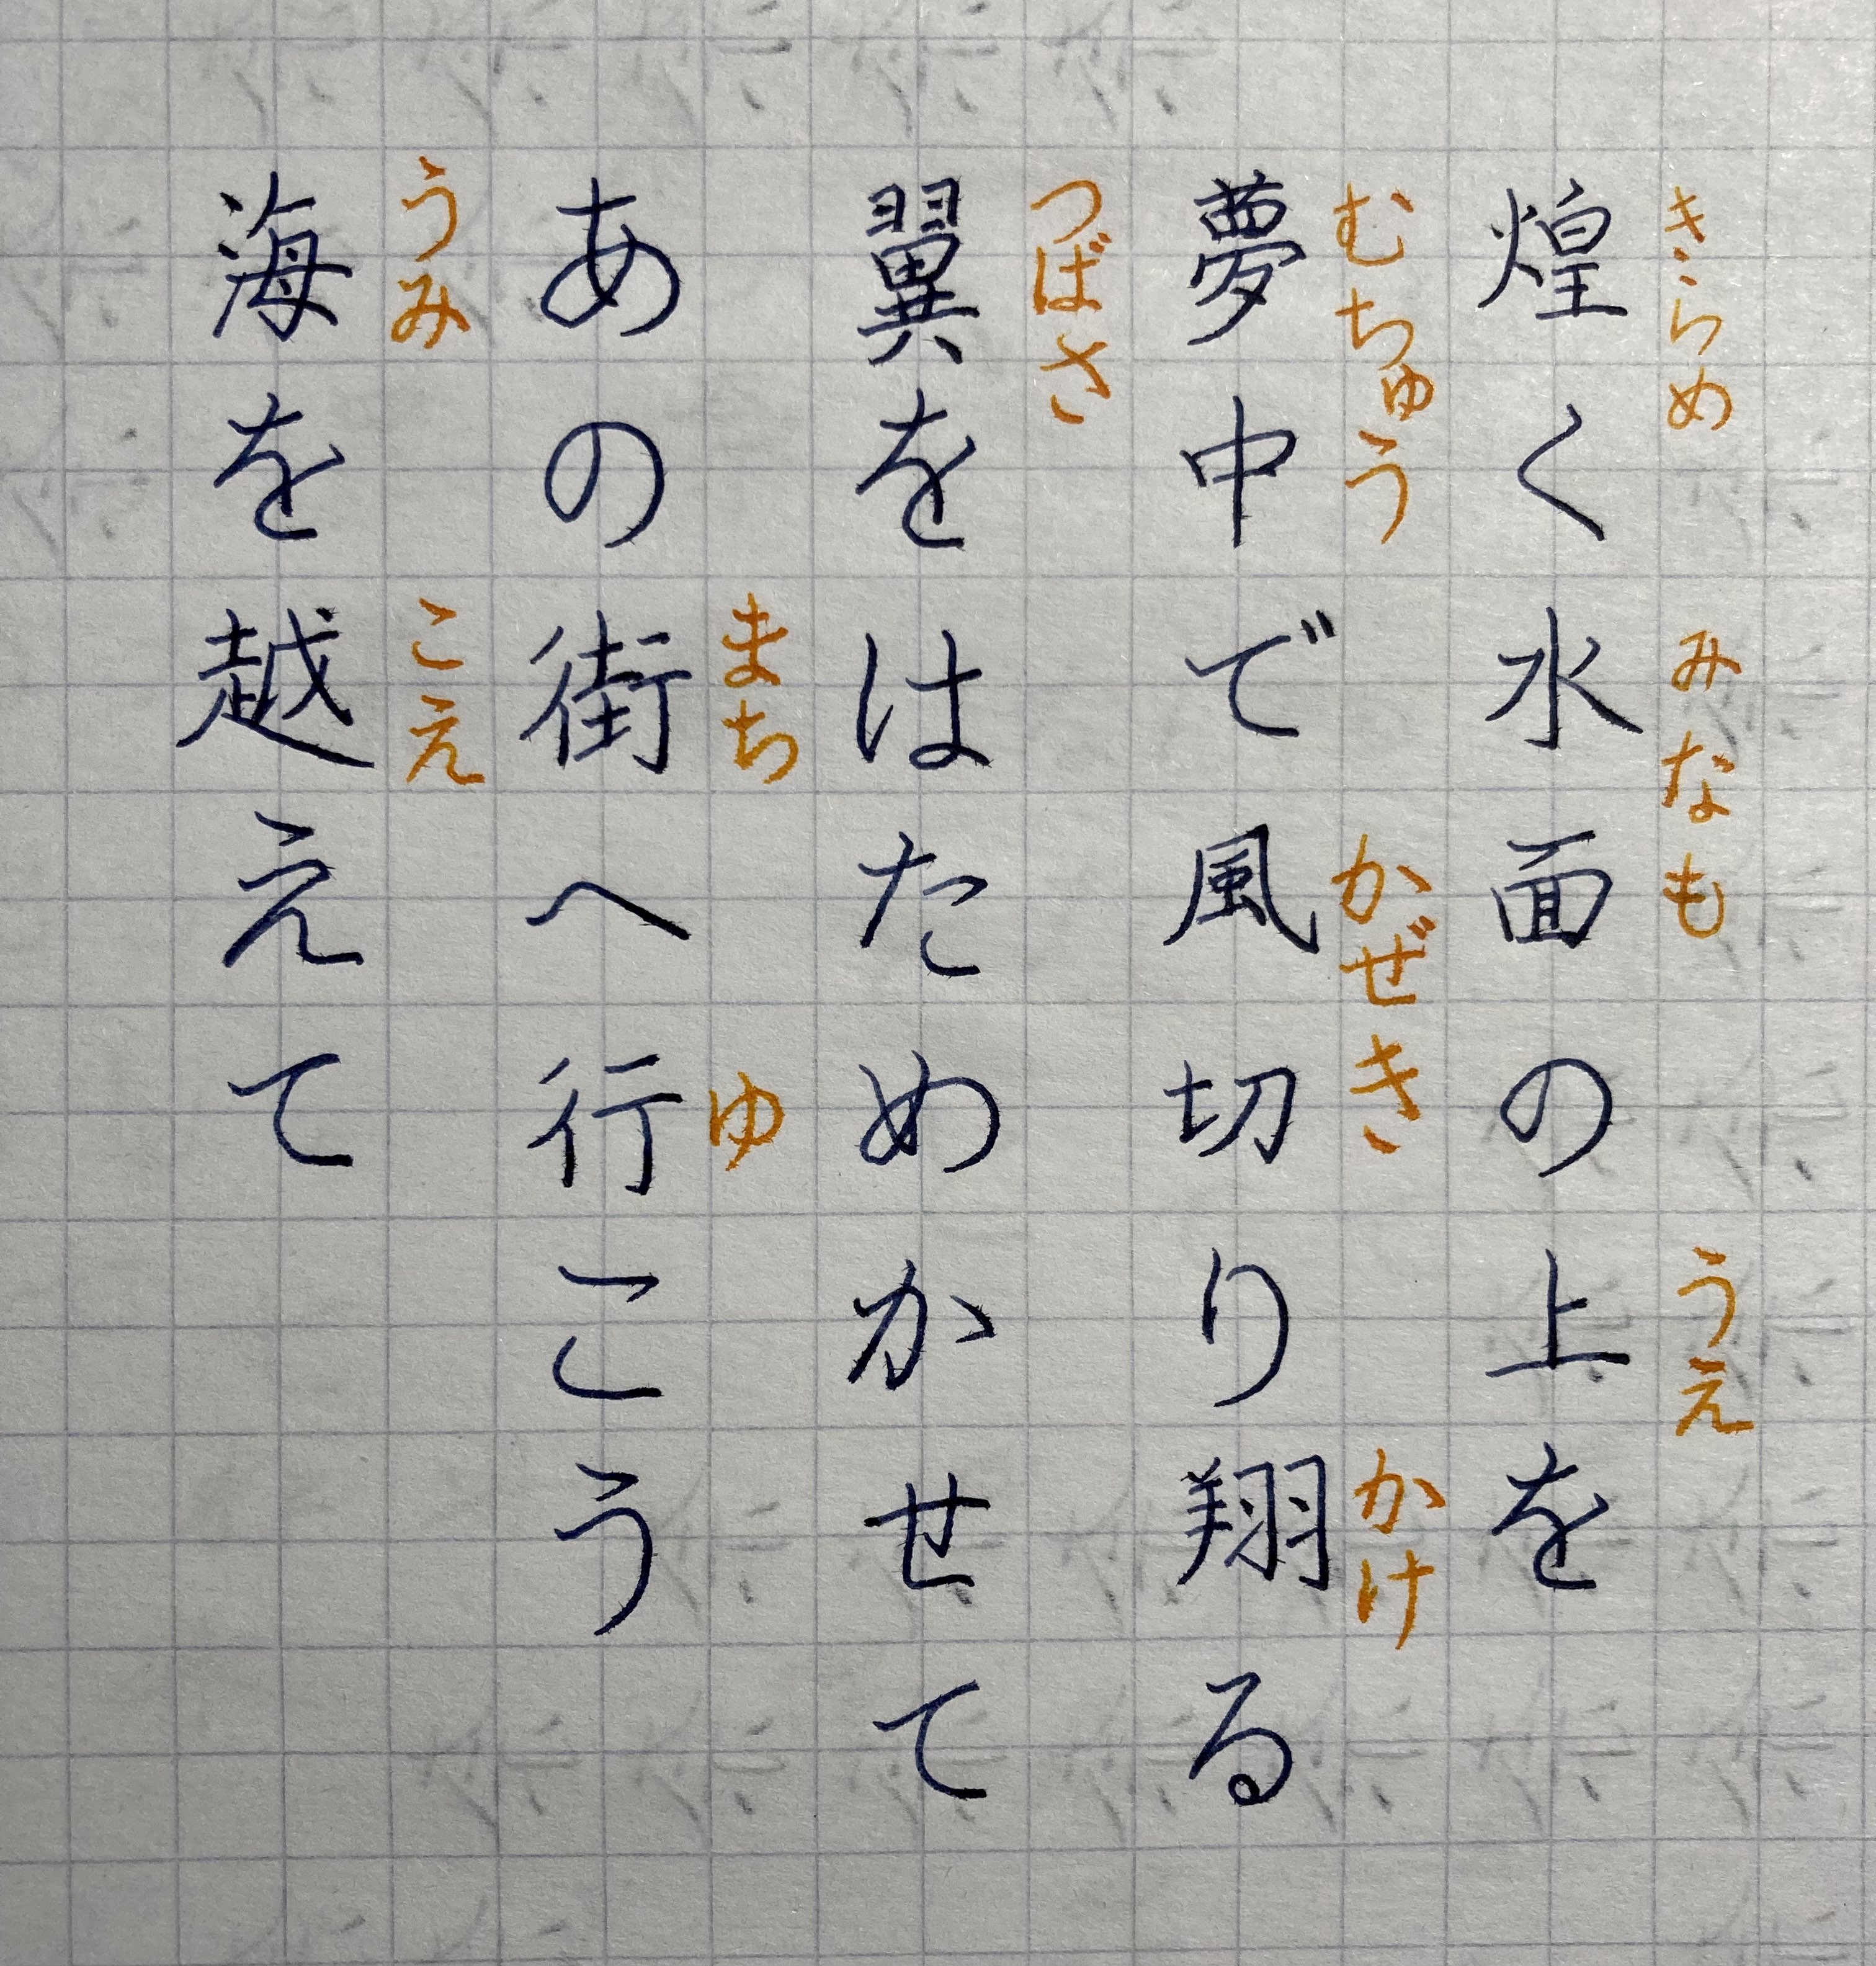 きらめ みなも うえ
煌く水面の上を
むちゅう かぜき かけ
夢中で風切り翔る
つばさ
翼をはためかせて
まち ゆ
あの街へ行こう
うみ こえ
海を越えて